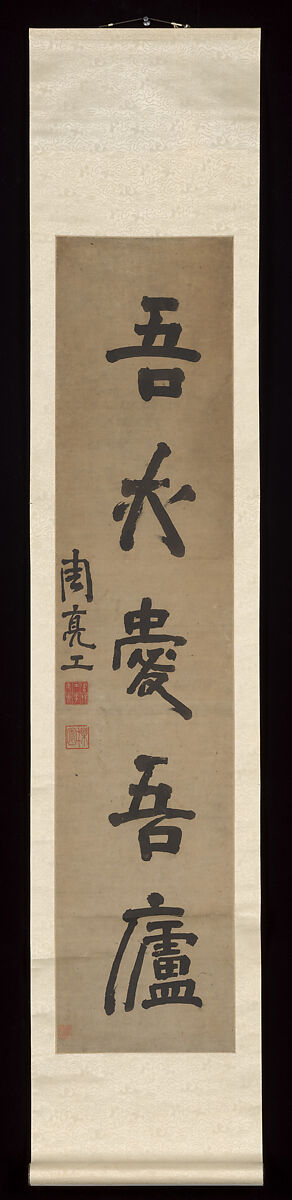 吾亦愛吾廬
周亮工